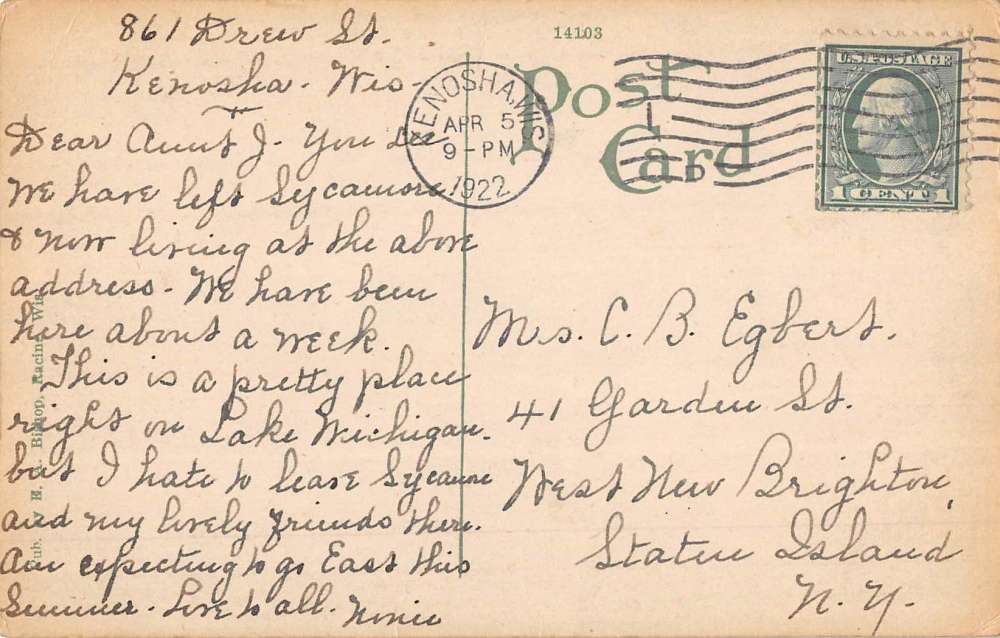 861 Drew St.
Kenosha - Wis -
Dear Aunt J. You see
We have left Sycamore
& now living at the above
address - We have been
here about a week.
This is a pretty place
right on Lake Michigan.
but I hate to leave Sycamore
and my lovely friends there.
Am expecting to go East this
Summer - Love to all.
14103
Post
Card
KENOSHA, WIS.
APR 5
9 - PM
1922
U.S. POSTAGE
1 CENT 1
Mrs. C. B. Egbert.
41 Garden St.
West New Brighton,
Staten Island
N. Y.
Bishop, Racine, Wis.